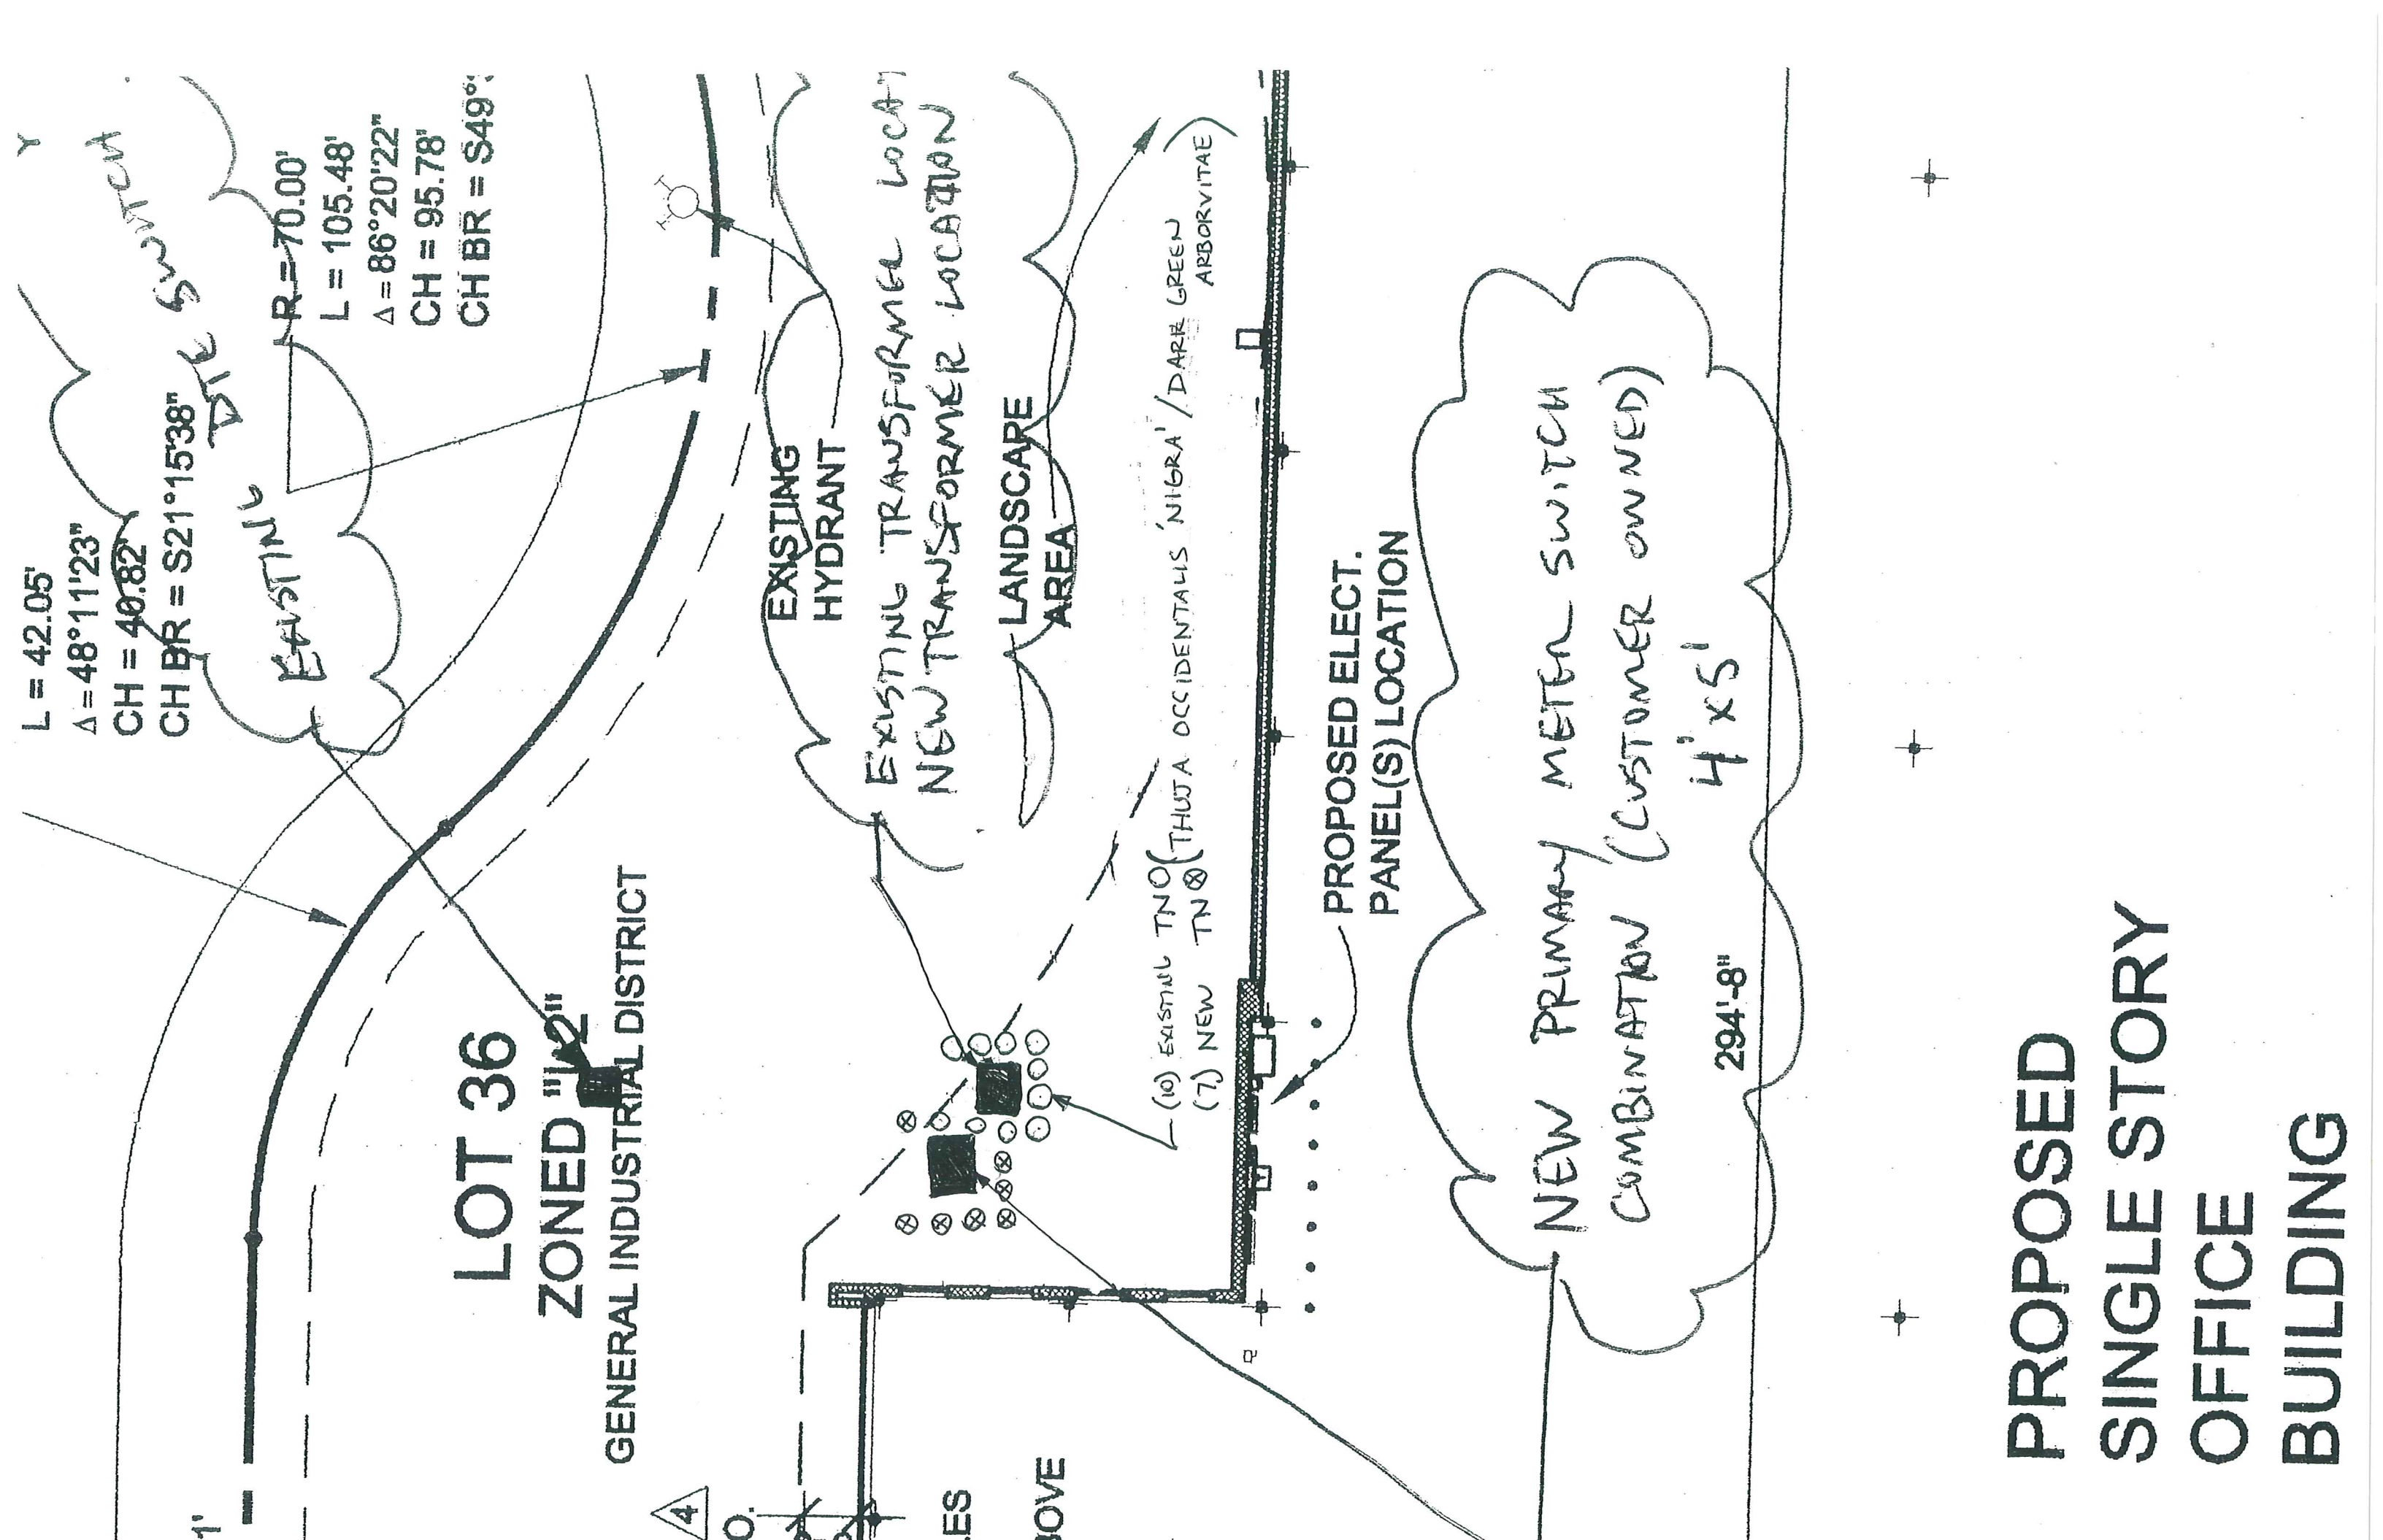 L = 42.05'
Δ = 48°11'23"
CH = 40.82'
CH BR = S21°15'38"
EXISTING
DTE SWITCH
R = 70.00'
L = 105.48'
Δ = 86°20'22"
CH = 95.78'
CH BR = S49°
LOT 36
ZONED "I-2"
GENERAL INDUSTRIAL DISTRICT
EXISTING
HYDRANT
EXISTING TRANSFORMER LOCAT
NEW TRANSFORMER LOCATION
LANDSCAPE
AREA
(10) EXISTING TN O (THUJA OCCIDENTALIS 'NIGRA' / DARK GREEN
ARBORVITAE)
(7) NEW TN ⊗
PROPOSED ELECT.
PANEL(S) LOCATION
NEW PRIMARY METER SWITCH
COMBINATION (CUSTOMER OWNED)
4' x 5'
294'-8"
PROPOSED
SINGLE STORY
OFFICE
BUILDING
1'
4
O.
LES
OVE